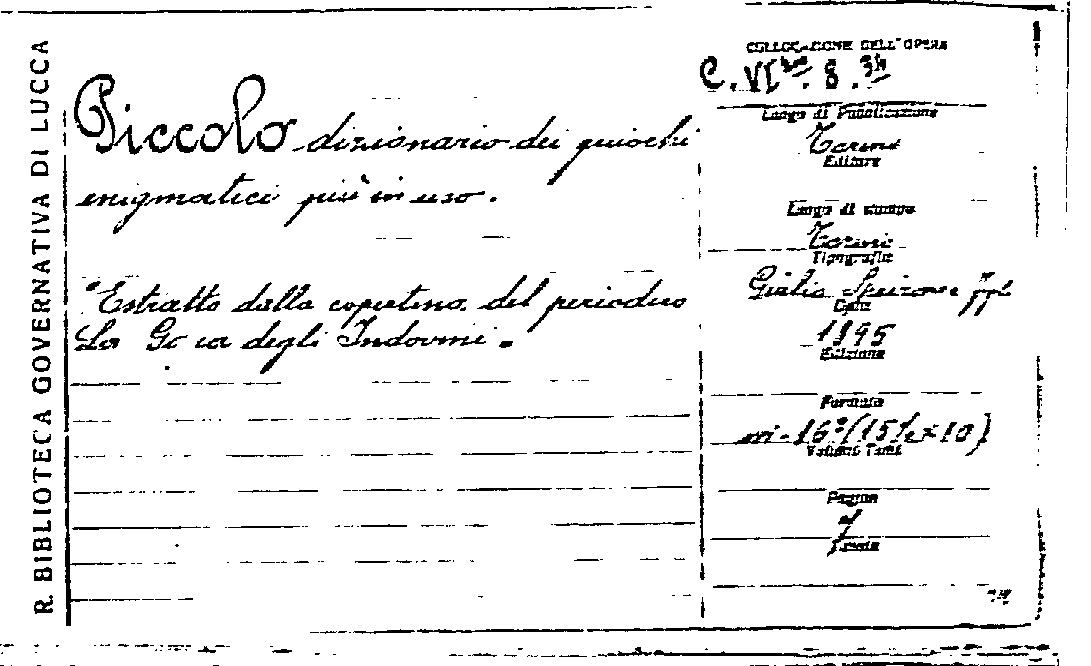 R. BIBLIOTECA GOVERNATIVA DI LUCCA
Piccolo dizionario dei giuochi
enigmatici più in uso.
"Estratto dalla copertina del periodico
La Gara degli Indovini.
COLLOCAZIONE DELL'OPERA
C. VI . 8 . 34
Luogo di Pubblicazione
Torino
Editore
Luogo di stampa
Torino
Tipografia
Giulio Speirani e figli
Data
1895
Edizione
Formato
in-16° (15½ x 10)
Volumi Tomi
Pagine
7
Tavole